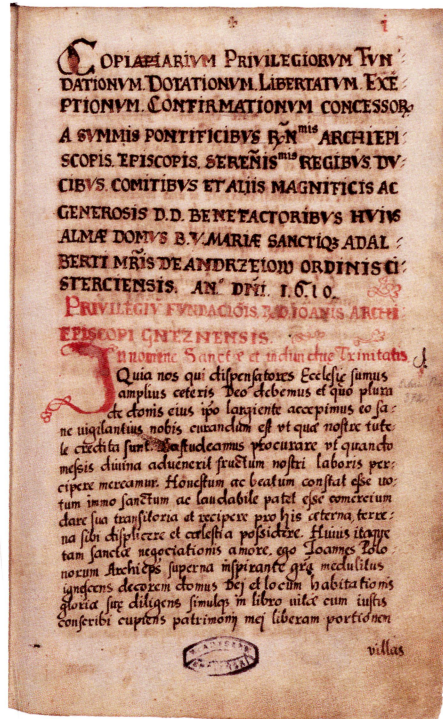 i
COPIARIVM PRIVILEGIORVM FVN⸗
DATIONVM. DOTATIONVM. LIBERTATVM. EXE⸗
PTIONVM. CONFIRMATIONVM CONCESSOR
A SVMMIS PONTIFICIBVS R̃Ñmis ARCHIEPI⸗
SCOPIS. EPISCOPIS. SEREÑISmis REGIBVS. DV⸗
CIBVS. COMITIBVS ET ALIIS MAGNIFICIS AC
GENEROSIS D.D. BENEFACTORIBVS HVIVS
ALMÆ DOMVS B.V. MARIÆ SANCTIQ; ADAL⸗
BERTI MR̃IS DE ANDRZEIOW ORDINIS CI⸗
STERCIENSIS. AN.º DÑI. 1.6.10.
PRIVILEGIṼ FVNDACIOIS. R.D. IOANIS ARCHI
EPISCOPI GNEZNENSIS.
In nomine Sanctæ et individuæ Trinitatis
Quia nos qui dispensatores Ecclesię sumus
amplius ceteris Deo debemus et quo plura
de donis eius ipo largiente accepimus eo sa⸗
ne vigilantius nobis curandum est vt quæ nostre tute⸗
le credita sunt. studeamus procurare vt quando
messis divina advenerit fructum nostri laboris per⸗
cipere mereamur. Honestum ac beatum constat esse vo⸗
tum immo sanctum ac laudabile patet esse comercium
dare sua transitoria et recipere pro his æterna, terre⸗
na sibi displicere et cœlestia possidere. Huius itaque
tam sanctæ negociationis amore, ego Joannes Polo⸗
norum Archieps superna inspirante grã medullitus
ignescens decorem domus Dej et locum habitationis
gloriæ suę diligens simulq; in libro vitæ cum iustis
conscribi cupiens patrimonij mej liberam portionen
villas